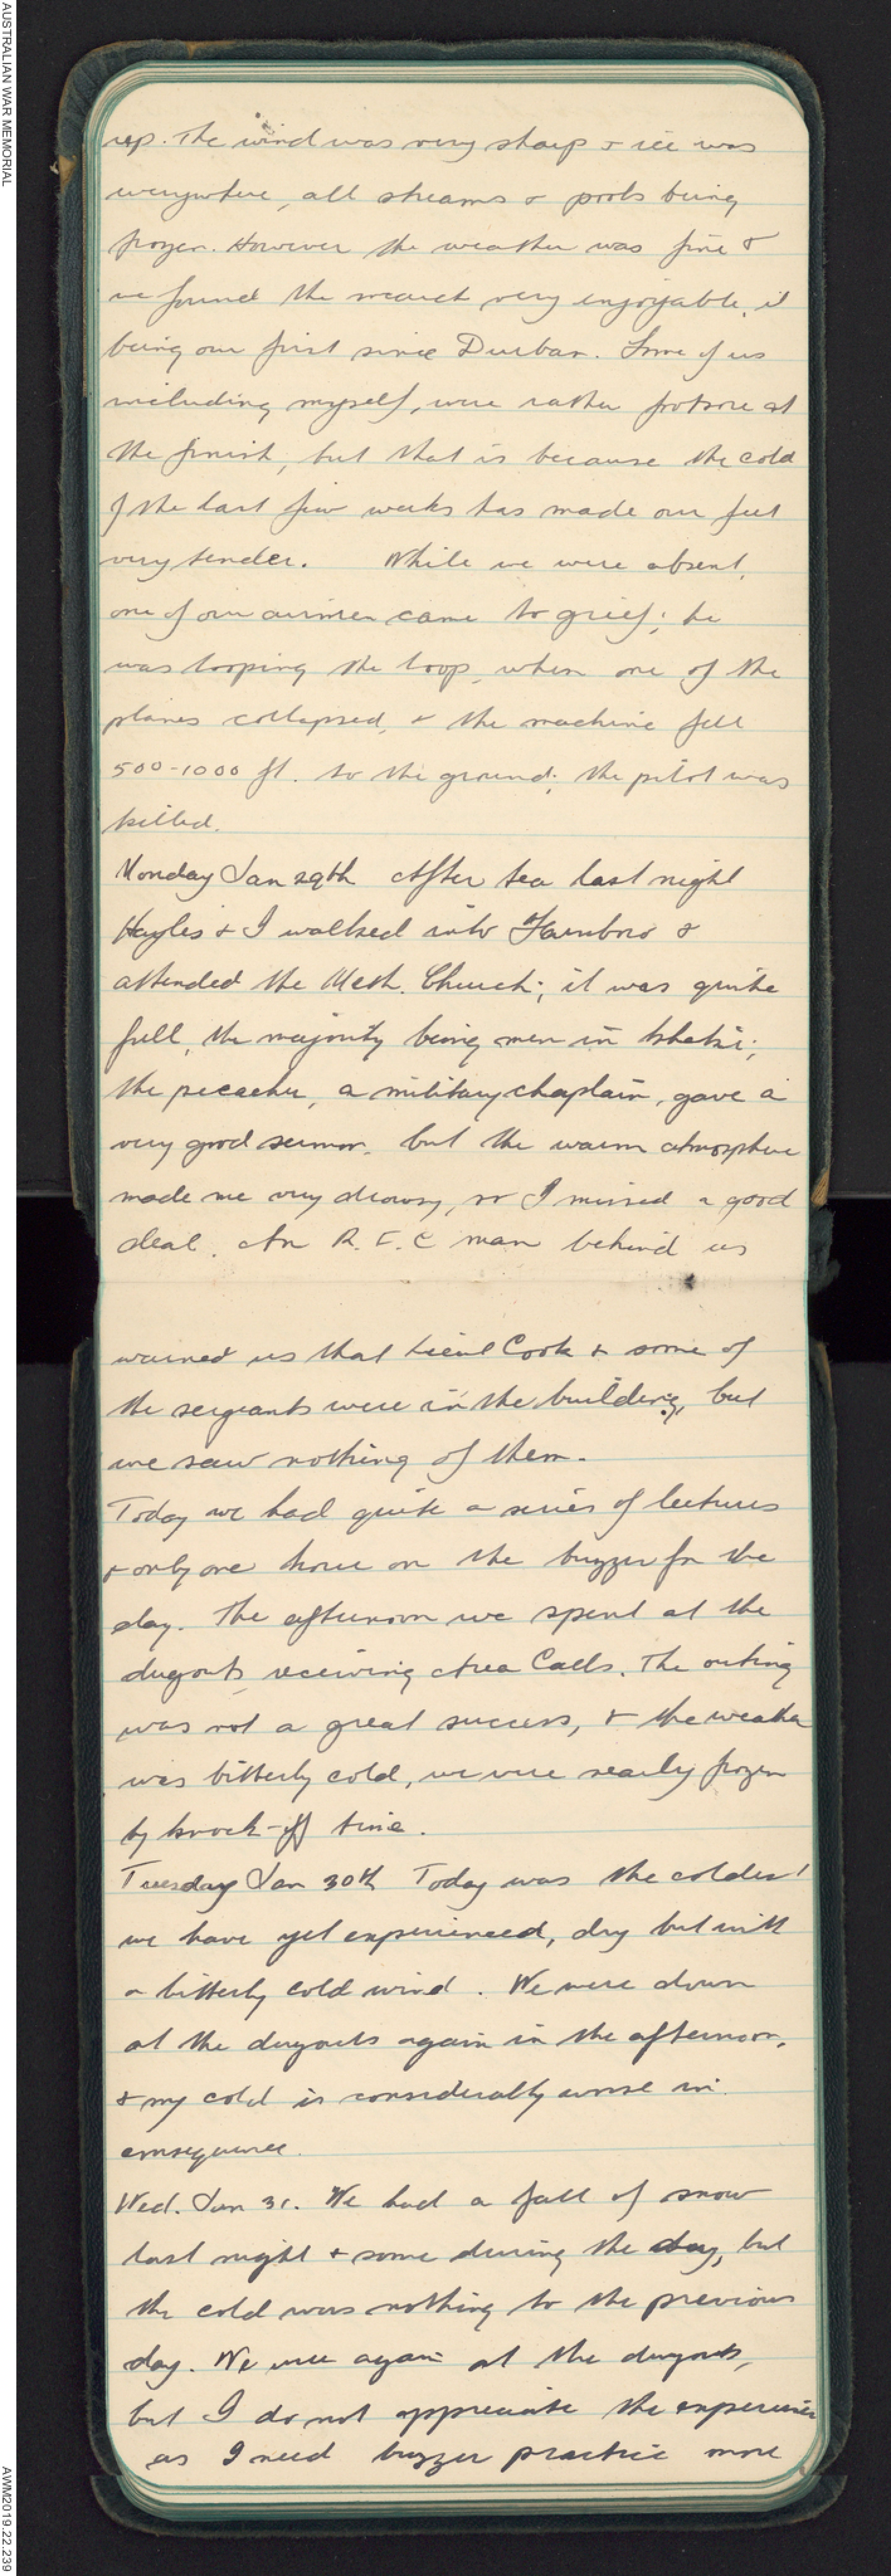 AUSTRALIAN WAR MEMORIAL
up. The wind was very sharp & ice was
everywhere, all streams & pools being
frozen. However the weather was fine &
we found the march very enjoyable, it
being our first since Durban. Some of us
including myself, were rather footsore at
the finish, but that is because the cold
of the last few weeks has made our feet
very tender. While we were absent,
one of our airmen came to grief; he
was looping the loop, when one of the
planes collapsed, & the machine fell
500-1000 ft. to the ground; the pilot was
killed.
Monday Jan 29th After tea last night
Hayles & I walked into Farnboro &
attended the Meth. Church; it was quite
full, the majority being men in khaki;
the preacher, a military chaplain, gave a
very good sermon, but the warm atmosphere
made me very drowsy, so I missed a good
deal. An R.F.C man behind us
warned us that Lieut Cook & some of
the sergeants were in the building, but
we saw nothing of them.
Today we had quite a series of lectures
& only one hour on the buzzer for the
day. The afternoon we spent at the
dugouts receiving Area Calls. The outing
was not a great success, & the weather
was bitterly cold, we were nearly frozen
by knock-off time.
Tuesday Jan 30th Today was the coldest
we have yet experienced, dry but with
a bitterly cold wind. We were down
at the dugouts again in the afternoon,
& my cold is considerably worse in
consequence.
Wed. Jan 31. We had a fall of snow
last night & some during the day, but
the cold was nothing to the previous
day. We were again at the dugouts,
but I do not appreciate the experience
as I need buzzer practice more
AWM2019.22.239